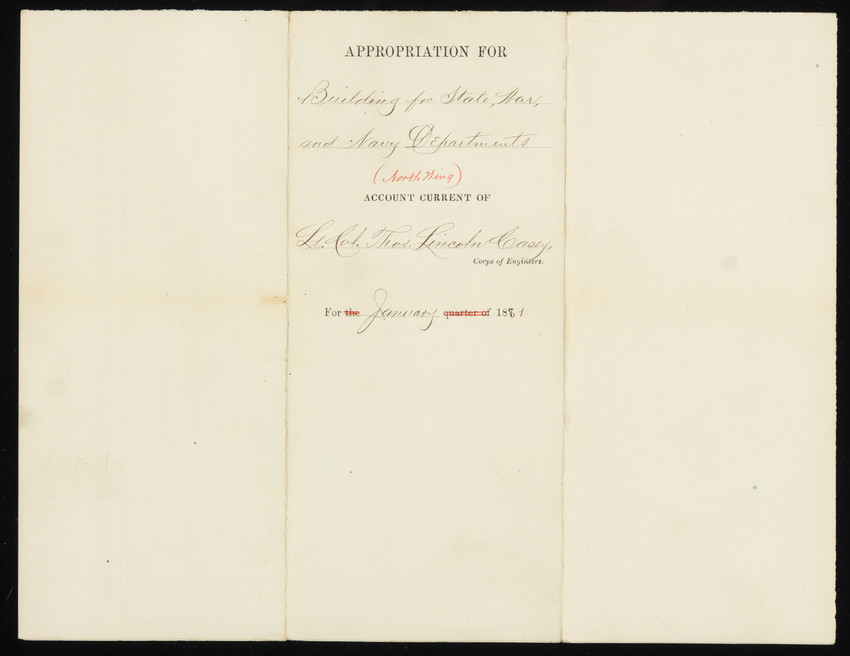 APPROPRIATION FOR
Building for State, War,
and Navy Departments
(North Wing)
ACCOUNT CURRENT OF
Lt. Col. Thos. Lincoln Casey,
Corps of Engineers.
For the January quarter of 1881